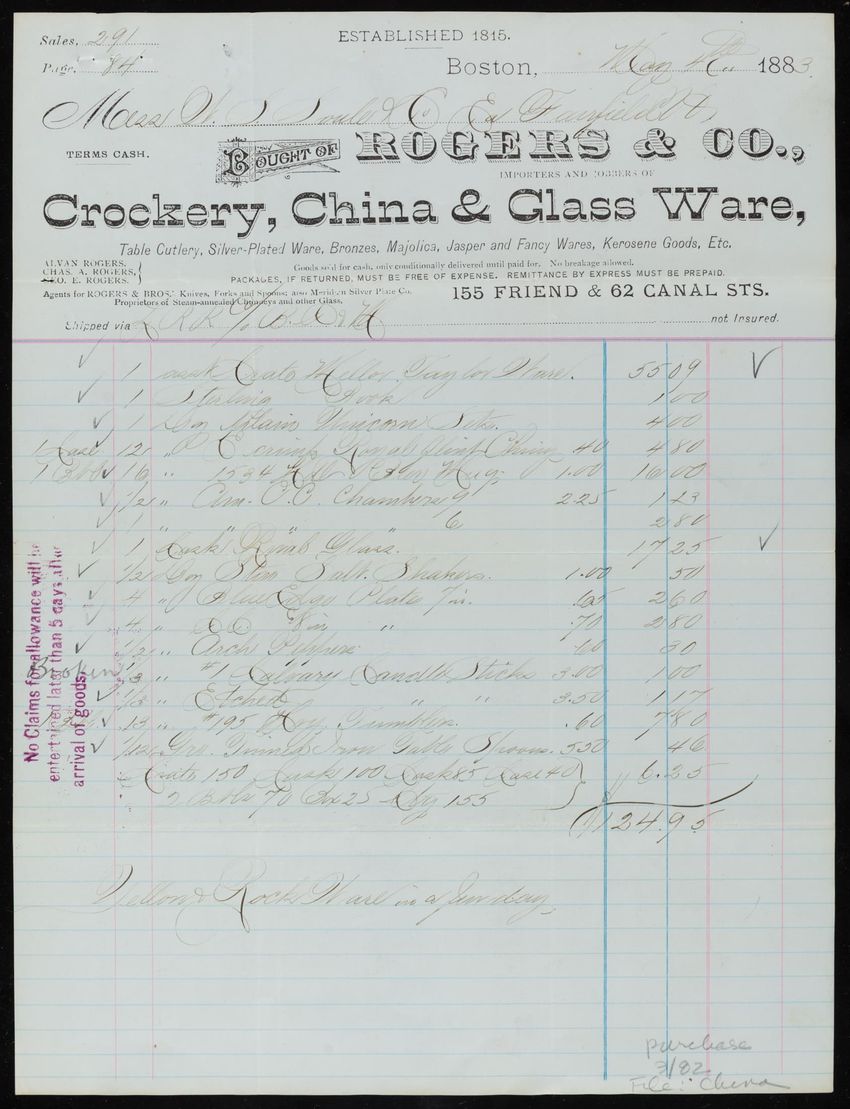 Sales, 291
Page, 84
ESTABLISHED 1815.
Boston, May 1883
Mess W. S. Soule & Co Fairfield
TERMS CASH.
BOUGHT OF ROGERS & CO.,
IMPORTERS AND JOBBERS OF
Crockery, China & Glass Ware,
Table Cutlery, Silver-Plated Ware, Bronzes, Majolica, Jasper and Fancy Wares, Kerosene Goods, Etc.
ALVAN ROGERS.
CHAS. A. ROGERS,
GEO. E. ROGERS.
Goods sold for cash, only conditionally delivered until paid for. No breakage allowed.
PACKAGES, IF RETURNED, MUST BE FREE OF EXPENSE. REMITTANCE BY EXPRESS MUST BE PREPAID.
Agents for ROGERS & BROS.' Knives, Forks and Spoons; also Meriden Silver Plate Co.
Proprietors of Steam-annealed Chimneys and other Glass.
155 FRIEND & 62 CANAL STS.
Shipped via R R not Insured.
1 Crate Taylor Ware. 55 09
1 1 00
1 Unicorn Sets. 4 00
1 Case 12 " Crimp Flint Chimy 40 4 80
16 " 1534 1.00 16 00
1/2 " C.C. Chambers 9 2.25 1 13
1 " " " " 6 2 80
1 Cask Glass. 17 25
1/2 Doz Salt Shakers. 1.00 50
4 " Blue Edge Plate 7 in. .65 2 60
4 " Do 8 in " .70 2 80
1/2 " Arch .60 30
Broken 1/3 " #1 Calvary Candle Sticks 3.00 1 00
1/3 " Etched " " 3.50 1 17
13 " #195 Tumblers. .60 7 80
1/12 Gro. Tinned Iron Table Spoons. 5.50 46
Crate 150 Cask 100 Cask 85 Case 40 } 6.25
2 Bbls 70 Box 25 155
$124.95
Yellow & Rock Ware in a few days
No Claims for allowance will be
entertained later than 5 days after
arrival of goods.
purchase
3/82
File: China